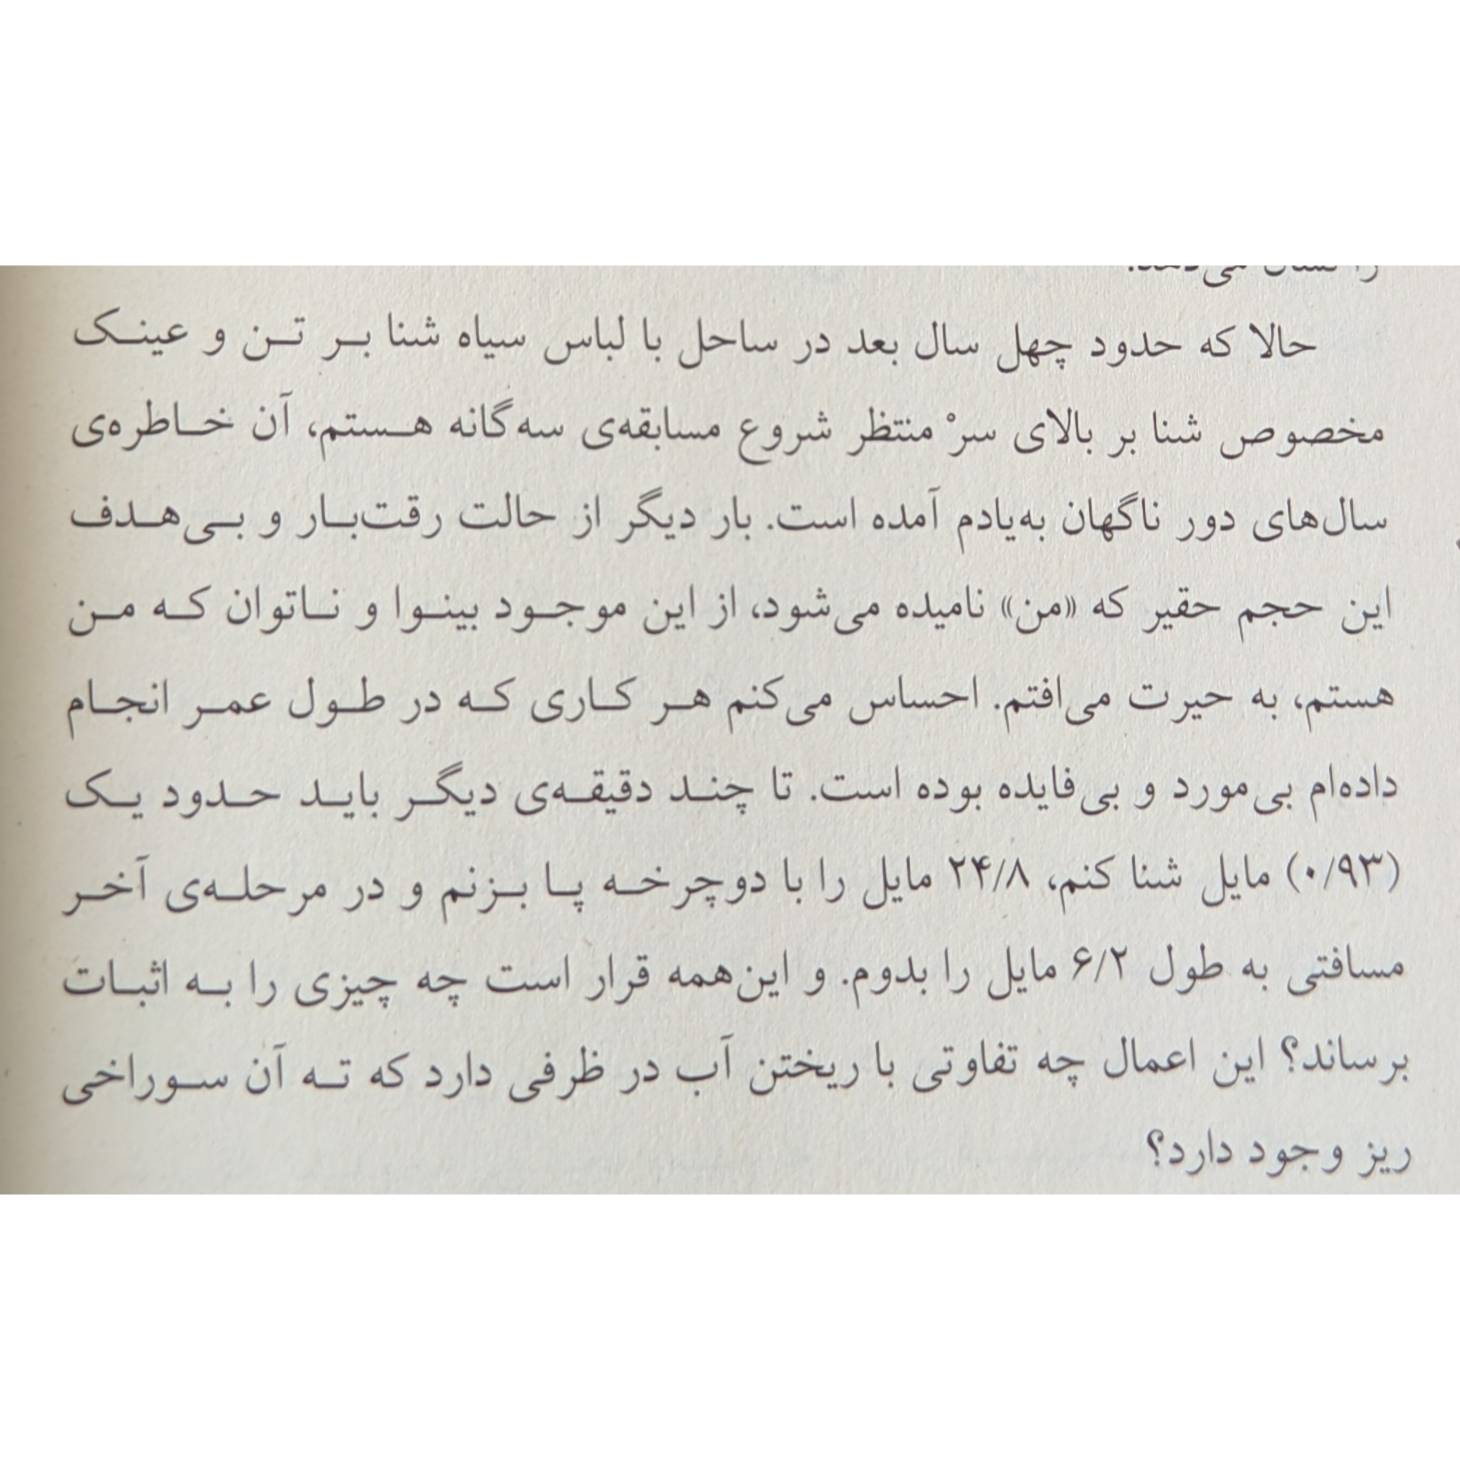 را نشان می‌دهد.
حالا که حدود چهل سال بعد در ساحل با لباس سیاه شنا بر تن و عینک
مخصوص شنا بر بالای سرْ منتظر شروع مسابقه‌ی سه‌گانه هستم، آن خاطره‌ی
سال‌های دور ناگهان به‌یادم آمده است. بار دیگر از حالت رقت‌بار و بی‌هدف
این حجم حقیر که «من» نامیده می‌شود، از این موجود بینوا و ناتوان که من
هستم، به حیرت می‌افتم. احساس می‌کنم هر کاری که در طول عمر انجام
داده‌ام بی‌مورد و بی‌فایده بوده است. تا چند دقیقه‌ی دیگر باید حدود یک
(۰/۹۳) مایل شنا کنم، ۲۴/۸ مایل را با دوچرخه پا بزنم و در مرحله‌ی آخر
مسافتی به طول ۶/۲ مایل را بدوم. و این‌همه قرار است چه چیزی را به اثبات
برساند؟ این اعمال چه تفاوتی با ریختن آب در ظرفی دارد که ته آن سوراخی
ریز وجود دارد؟